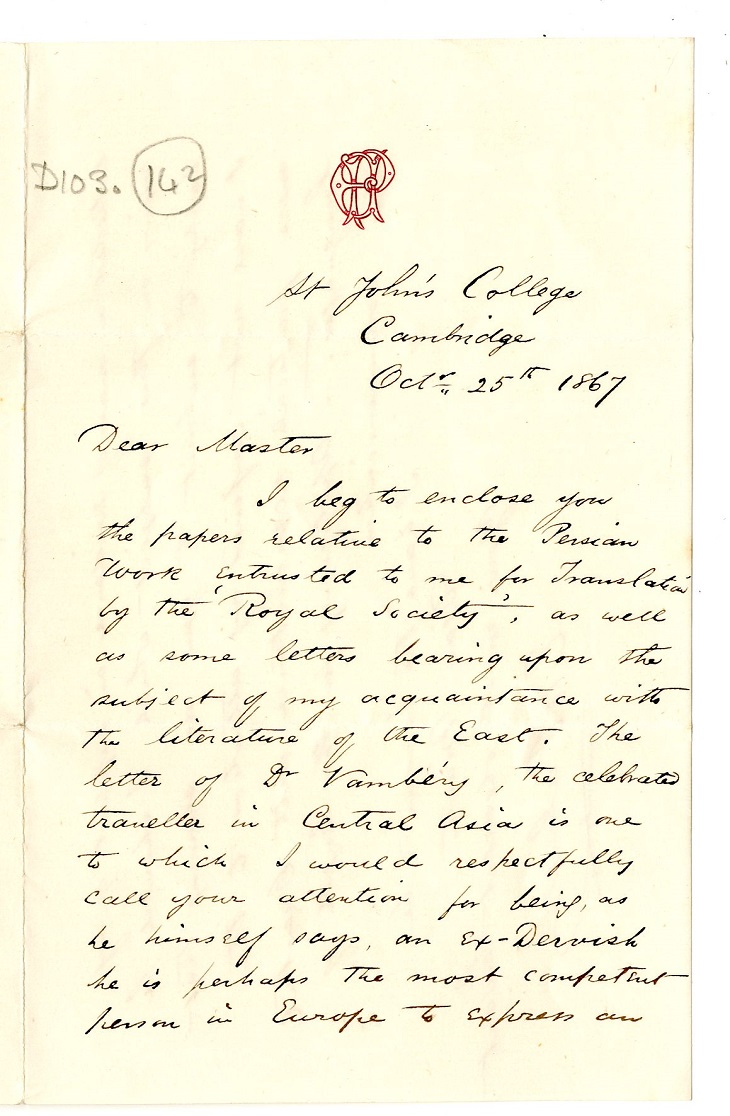 D103. 142
St John's College
Cambridge
Octr. 25th 1867
Dear Master
I beg to enclose you
the papers relative to the Persian
Work entrusted to me for Translation
by the 'Royal Society', as well
as some letters bearing upon the
subject of my acquaintance with
the literature of the East. The
letter of Dr Vambéry, the celebrated
traveller in Central Asia is one
to which I would respectfully
call your attention for being, as
he himself says, an ex-Dervish
he is perhaps the most competent
person in Europe to express an